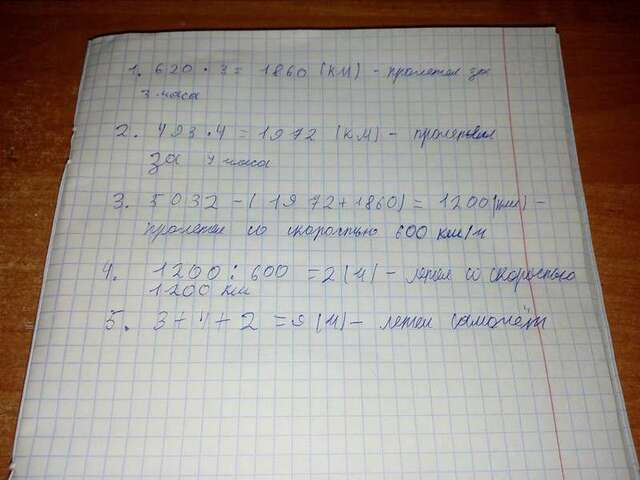 1. 620 · 3 = 1860 (км) - пролетел за
3 часа
2. 493 · 4 = 1972 (км) - пролетел
за 4 часа
3. 5032 - (1972 + 1860) = 1200 (км) -
пролетел со скоростью 600 км/ч
4. 1200 : 600 = 2 (ч) - летел со скоростью
1200 км
5. 3 + 4 + 2 = 9 (ч) - летел самолёт